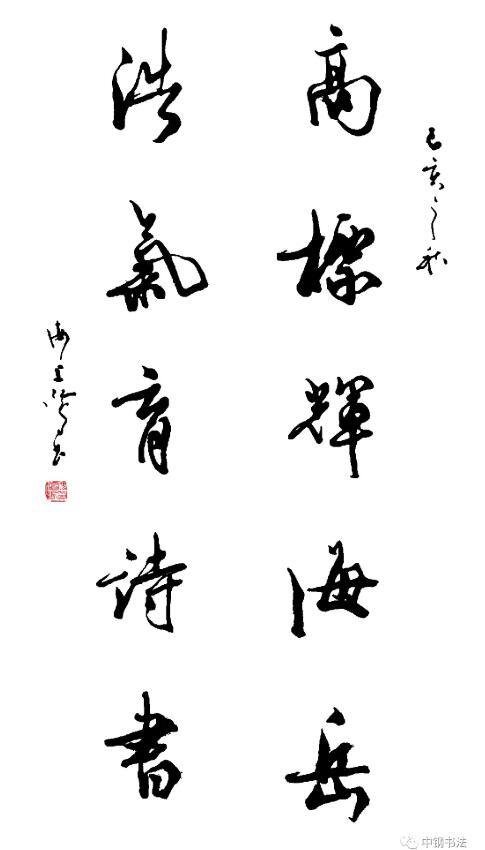 己亥之秋
高標輝海岳
浩氣育詩書
中钢书法